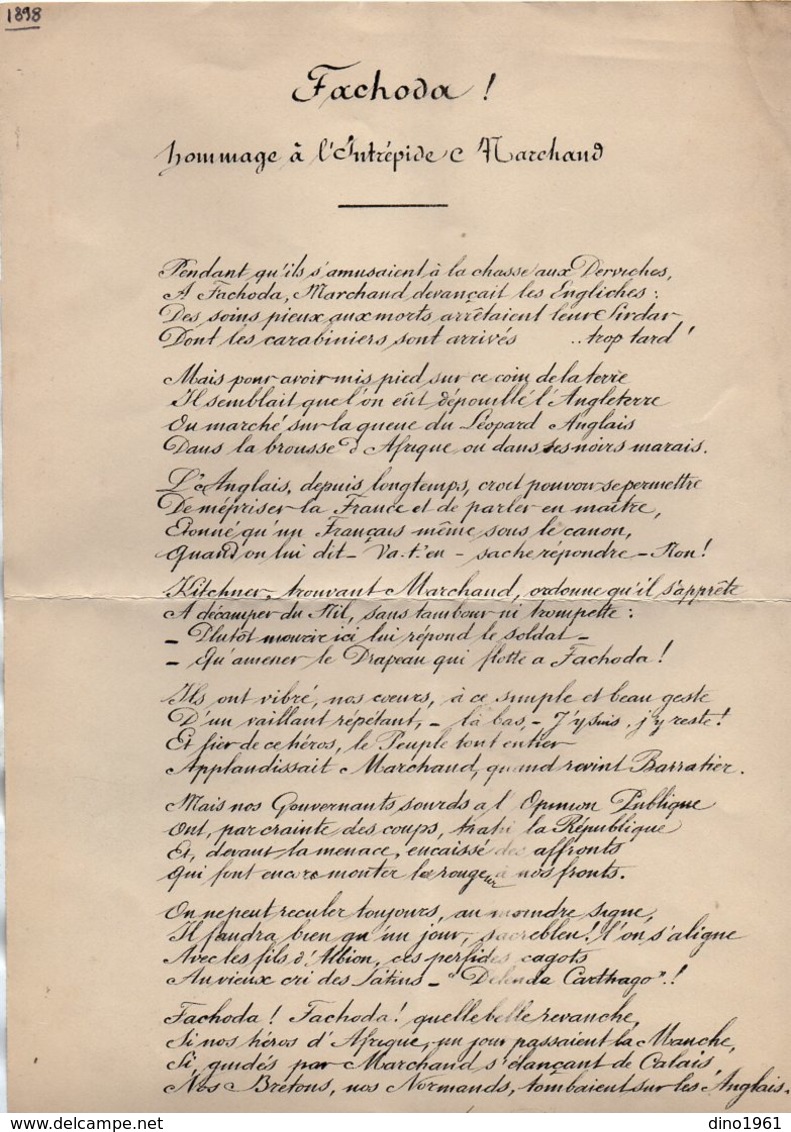 1898
Fachoda !
hommage à l'Intrépide C Marchand
Pendant qu'ils s'amusaient à la chasse aux Derviches,
A Fachoda, Marchand devançait les Engliches :
Des soins pieux aux morts arrêtaient leur Sirdar
Dont les carabiniers sont arrivés .. trop tard !
Mais pour avoir mis pied sur ce coin de la terre
Il semblait que l'on eût dépouillé l'Angleterre
Ou marché sur la queue du Léopard Anglais
Dans la brousse d'Afrique ou dans ses noirs marais.
L'Anglais, depuis longtemps, croit pouvoir se permettre
De mépriser la France et de parler en maître,
Etonné qu'un Français même sous le canon,
Quand on lui dit - Va-t'en - sache répondre - Non !
Kitchner, trouvant Marchand, ordonne qu'il s'apprête
A décamper du Nil, sans tambour ni trompette :
- Plutôt mourir ici lui répond le soldat -
- Qu'amener le Drapeau qui flotte a Fachoda !
Ils ont vibré, nos coeurs, à ce simple et beau geste
D'un vaillant répétant, - là bas, - J'y suis, j'y reste !
Et fier de ce héros, le Peuple tout entier
Applaudissait Marchand, quand revint Barratier.
Mais nos Gouvernants sourds a l'Opinion Publique
Ont, par crainte des coups, trahi la République
Et, devant la menace, encaissé des affronts
Qui font encore monter la rougeur à nos fronts.
On ne peut reculer toujours, au moindre signe,
Il faudra bien qu'un jour, sacrebleu ! l'on s'aligne
Avec les fils d'Albion, ces perfides cagots
Au vieux cri des Latins - "Delenda Carthago" !
Fachoda ! Fachoda ! quelle belle revanche,
Si nos héros d'Afrique, un jour passaient la Manche,
Si, guidés par Marchand s'élançant de Calais,
Nos Bretons, nos Normands, tombaient sur les Anglais.
dino1961